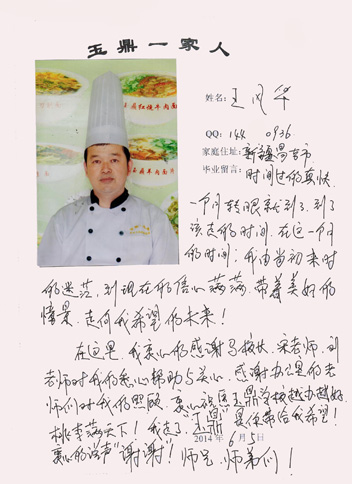 玉鼎一家人
姓名：王风华
QQ：144 0936
家庭住址：新疆昌吉市
毕业留言：时间过的真快
一个月转眼就到了，到了
该走的时间，在这一个月
的时间，我由当初来时
的迷茫，到现在的信心满满，带着美好的
情景，走向我希望的未来！
在这里，我衷心的感谢马校长，宋老师，刘
老师对我的悉心帮助与关心，感谢办公室的老
师们对我的照顾，衷心祝愿玉鼎学校越办越好
桃李满天下！我走了，玉鼎 是你带给我希望！
衷心的说声“谢谢”！师兄，师弟们！
2014年6月5日